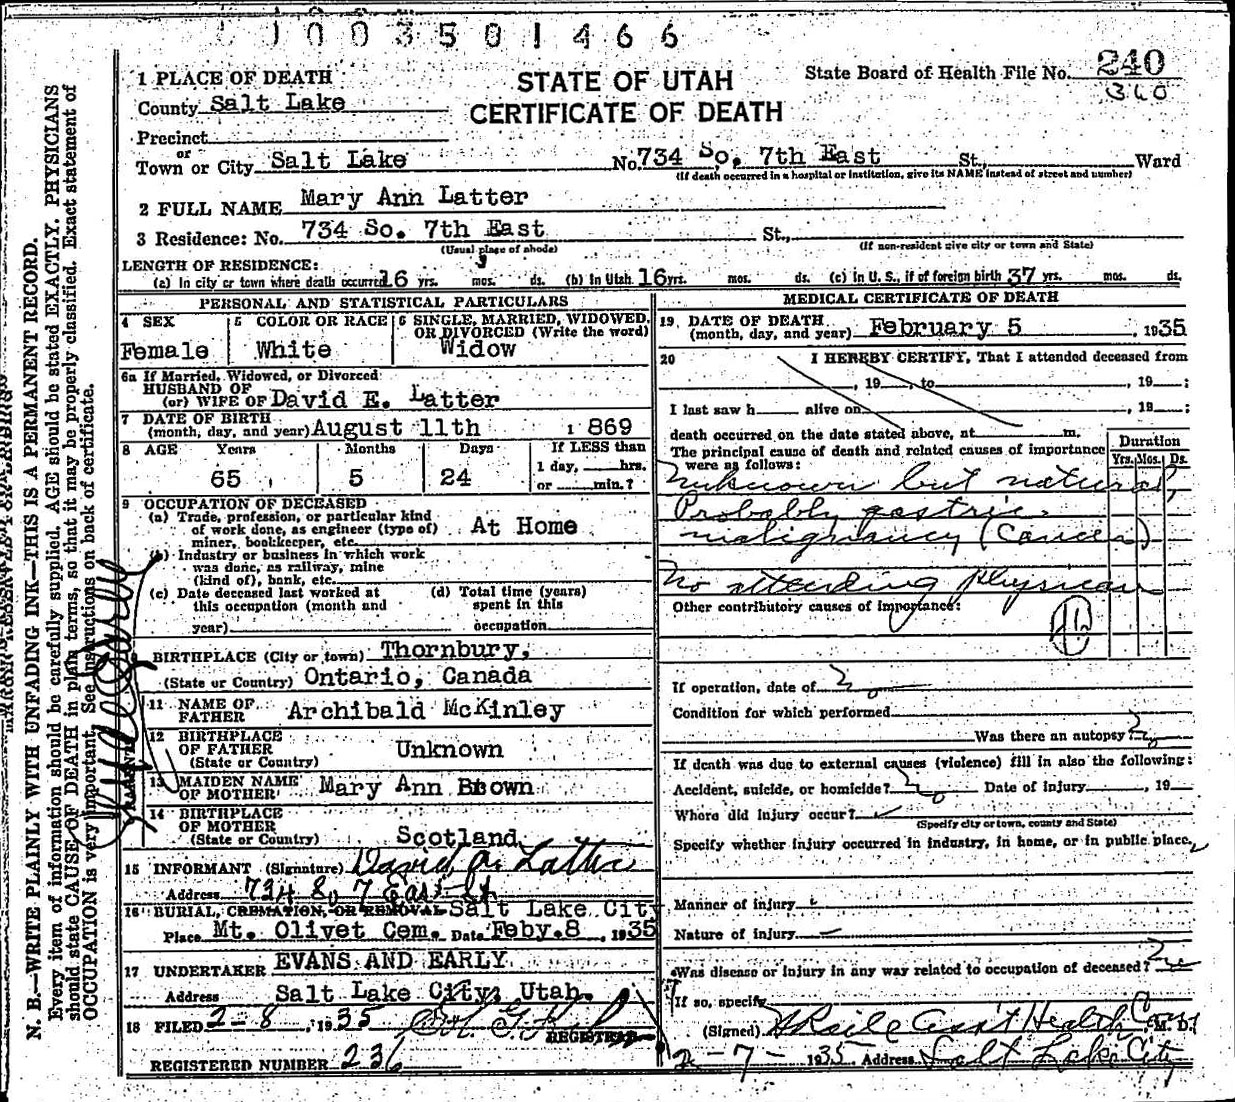 1003501466
STATE OF UTAH
CERTIFICATE OF DEATH
State Board of Health File No. 240
360
1 PLACE OF DEATH
County Salt Lake
Precinct
or
Town or City Salt Lake No. 734 So. 7th East St., Ward
(If death occurred in a hospital or institution, give its NAME instead of street and number)
2 FULL NAME Mary Ann Latter
3 Residence: No. 734 So. 7th East St.,
(Usual place of abode) (If non-resident give city or town and State)
LENGTH OF RESIDENCE:
(a) In city or town where death occurred 16 yrs. mos. ds. (b) In Utah 16 yrs. mos. ds. (c) in U. S., if of foreign birth 37 yrs. mos. ds.
PERSONAL AND STATISTICAL PARTICULARS
4 SEX
Female
5 COLOR OR RACE
White
6 SINGLE, MARRIED, WIDOWED,
OR DIVORCED (Write the word)
Widow
6a If Married, Widowed, or Divorced
HUSBAND OF
(or) WIFE OF David E. Latter
7 DATE OF BIRTH
(month, day, and year) August 11th 1869
8 AGE Years Months Days If LESS than
1 day, hrs.
65 5 24 or min.?
9 OCCUPATION OF DECEASED
(a) Trade, profession, or particular kind
of work done, as engineer (type of) At Home
miner, bookkeeper, etc.
(b) Industry or business in which work
was done, as railway, mine
(kind of), bank, etc.
(c) Date deceased last worked at (d) Total time (years)
this occupation (month and spent in this
year) occupation
BIRTHPLACE (City or town) Thornbury,
(State or Country) Ontario, Canada
PARENTS
11 NAME OF
FATHER Archibald McKinley
12 BIRTHPLACE
OF FATHER Unknown
(State or Country)
13 MAIDEN NAME
OF MOTHER Mary Ann Brown
14 BIRTHPLACE
OF MOTHER
(State or Country) Scotland
15 INFORMANT (Signature) David A. Latter
Address 734 So 7 East St
16 BURIAL, CREMATION, OR REMOVAL Salt Lake City
Place Mt. Olivet Cem. Date Feby. 8, 1935
17 UNDERTAKER EVANS AND EARLY
Address Salt Lake City, Utah.
18 FILED 2-8, 1935
REGISTRAR
REGISTERED NUMBER 236
MEDICAL CERTIFICATE OF DEATH
19 DATE OF DEATH
(month, day, and year) February 5, 1935
20 I HEREBY CERTIFY, That I attended deceased from
, 19 , to , 19 ;
I last saw h alive on , 19 ;
death occurred on the date stated above, at m.
The principal cause of death and related causes of importance
were as follows:
Duration
Yrs. Mos. Ds.
Unknown but natural,
Probably gastric
malignancy (Cancer)
No attending physician
Other contributory causes of importance:
If operation, date of No
Condition for which performed
Was there an autopsy? No
If death was due to external causes (violence) fill in also the following:
Accident, suicide, or homicide? No Date of injury , 19
Where did injury occur?
(Specify city or town, county and State)
Specify whether injury occurred in industry, in home, or in public place,
Manner of injury
Nature of injury
Was disease or injury in any way related to occupation of deceased? No
If so, specify
(Signed) Ass't Health M. D.
2-7-1935 Address Salt Lake City
N. B.—WRITE PLAINLY WITH UNFADING INK—THIS IS A PERMANENT RECORD.
Every item of information should be carefully supplied. AGE should be stated EXACTLY. PHYSICIANS
should state CAUSE OF DEATH in plain terms, so that it may be properly classified. Exact statement of
OCCUPATION is very important. See instructions on back of certificate.